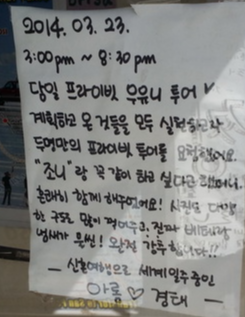 2014. 03. 23.
3:00pm ~ 8:30 pm
당일 프라이빗 우유니 투어
계획하고 온 것들을 모두
두명만의 프라이빗 투어를 요청했어요.
"조니"랑 꼭 같이 하고 싶다고 했더니,
흔쾌히 함께 해주었어요! 사진도
한 구도로 많이 찍어주고, 진짜 베테랑
냄새가 물씬! 완전 강추합니다!!
— 신혼여행으로 세계일주중인
아름♡경태 —